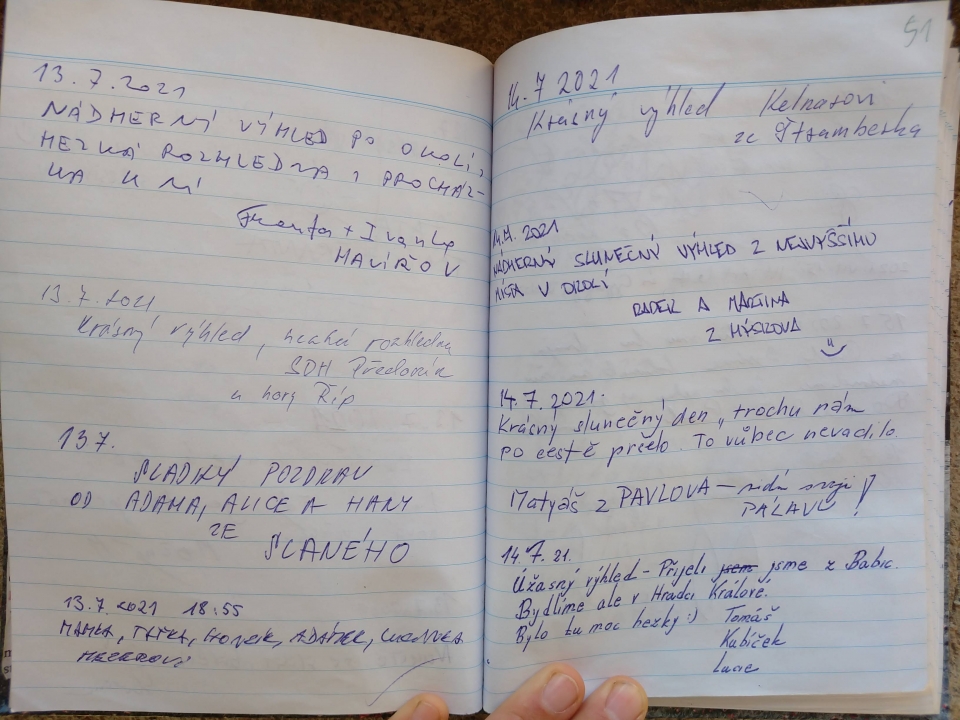 13.7.2021
NÁDHERNÝ VÝHLED PO OKOLÍ,
HEZKÁ ROZHLEDNA I PROCHÁZ-
KA K NÍ
Franta + Ivanka
HAVÍŘOV
13.7.2021
Krásný výhled, hezká rozhledna
SDH Předonín
u hory Říp
13 7.
SLADKÝ POZDRAV
OD ADAMA, ALICE A HANY
ZE
SLANÉHO
13.7.2021 18:55
MAMKA, TAŤKA, ADÁMEK,
51
14.7 2021
Krásný výhled Kelnarovi
ze Štramberka
14.7. 2021
NÁDHERNÝ SLUNEČNÝ VÝHLED Z NEJVYŠŠÍHO
MÍSTA V OKOLÍ
RADEK A MARTINA
Z HÝSKOVA
14.7.2021.
Krásný slunečný den, trochu nám
po cestě pršelo. To vůbec nevadilo.
Matyáš z PAVLOVA –
PÁLAVU!
14.7.21.
Úžasný výhled - Přijeli jsem jsme z Babic.
Bydlíme ale v Hradci Králové.
Bylo tu moc hezky :) Tomáš
Kubíček
Lucie